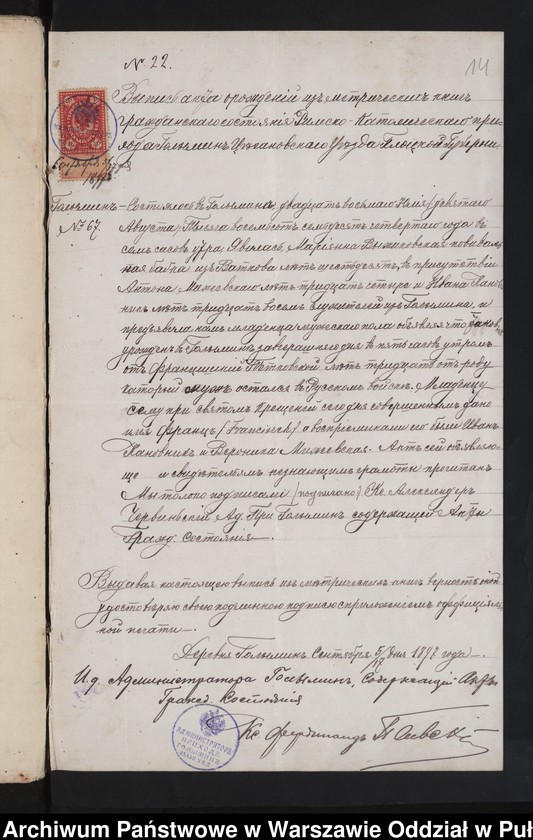 № 22.
14
Выпись акта о рождении изъ метрическихъ книгъ
гражданскаго состоянія Римско-Католическаго при-
хода Голыминъ Цѣхановскаго Уѣзда Плоцкой Губерніи
1897
Голыминъ
№ 67.
Состоялось въ Голыминѣ, двадцать восьмаго Іюля /девятаго
Августа/ Тысяча восемьсотъ семьдесятъ четвертаго года въ
семь часовъ утра. Явилась, Маріянна повиваль-
ная бабка изъ лѣтъ шестьдесятъ, въ присутствіи
Антона лѣтъ тридцать четыре и Ивана Канов-
никъ лѣтъ тридцать восемь служителей изъ Голымина, и
предъявила намъ младенца мужескаго пола объявляя что онъ
урожденъ въ Голыминѣ вчерашняго дня въ пять часовъ утромъ
отъ Францишки лѣтъ тридцать отъ роду
которой мужъ остался въ Русскомъ войскѣ. Младенцу
сему при святомъ Крещеніи сегодня совершенномъ дано
имя Францъ /Franciszek/ а воспріемниками его были Иванъ
Кановникъ и Вероника. Актъ сей объявляю-
щей и свидѣтелямъ незнающимъ грамоты прочитанъ
Мы только подписали /подписано/ Кс. Александеръ
Червиньскій Ад. Пр. Голыминъ содержащій Акты
Гражд. Состоянія.
Выдавая настоящую выпись изъ метрическихъ книгъ вѣрность оной
удостовѣряю своею подлинною подписью съ приложеніемъ оффиціаль-
ной печати.
Деревня Голыминъ Сентября 5/17 дня 1897 года.
И. д. Администратора Голыминъ, Содержащій Акты
Гражд. Состоянія
Кс Фердинандъ
АДМИНИСТРАТОРЪ
ПРИХОДА
ГОЛЫМИНЪ
Archiwum Państwowe w Warszawie Oddział w Puł